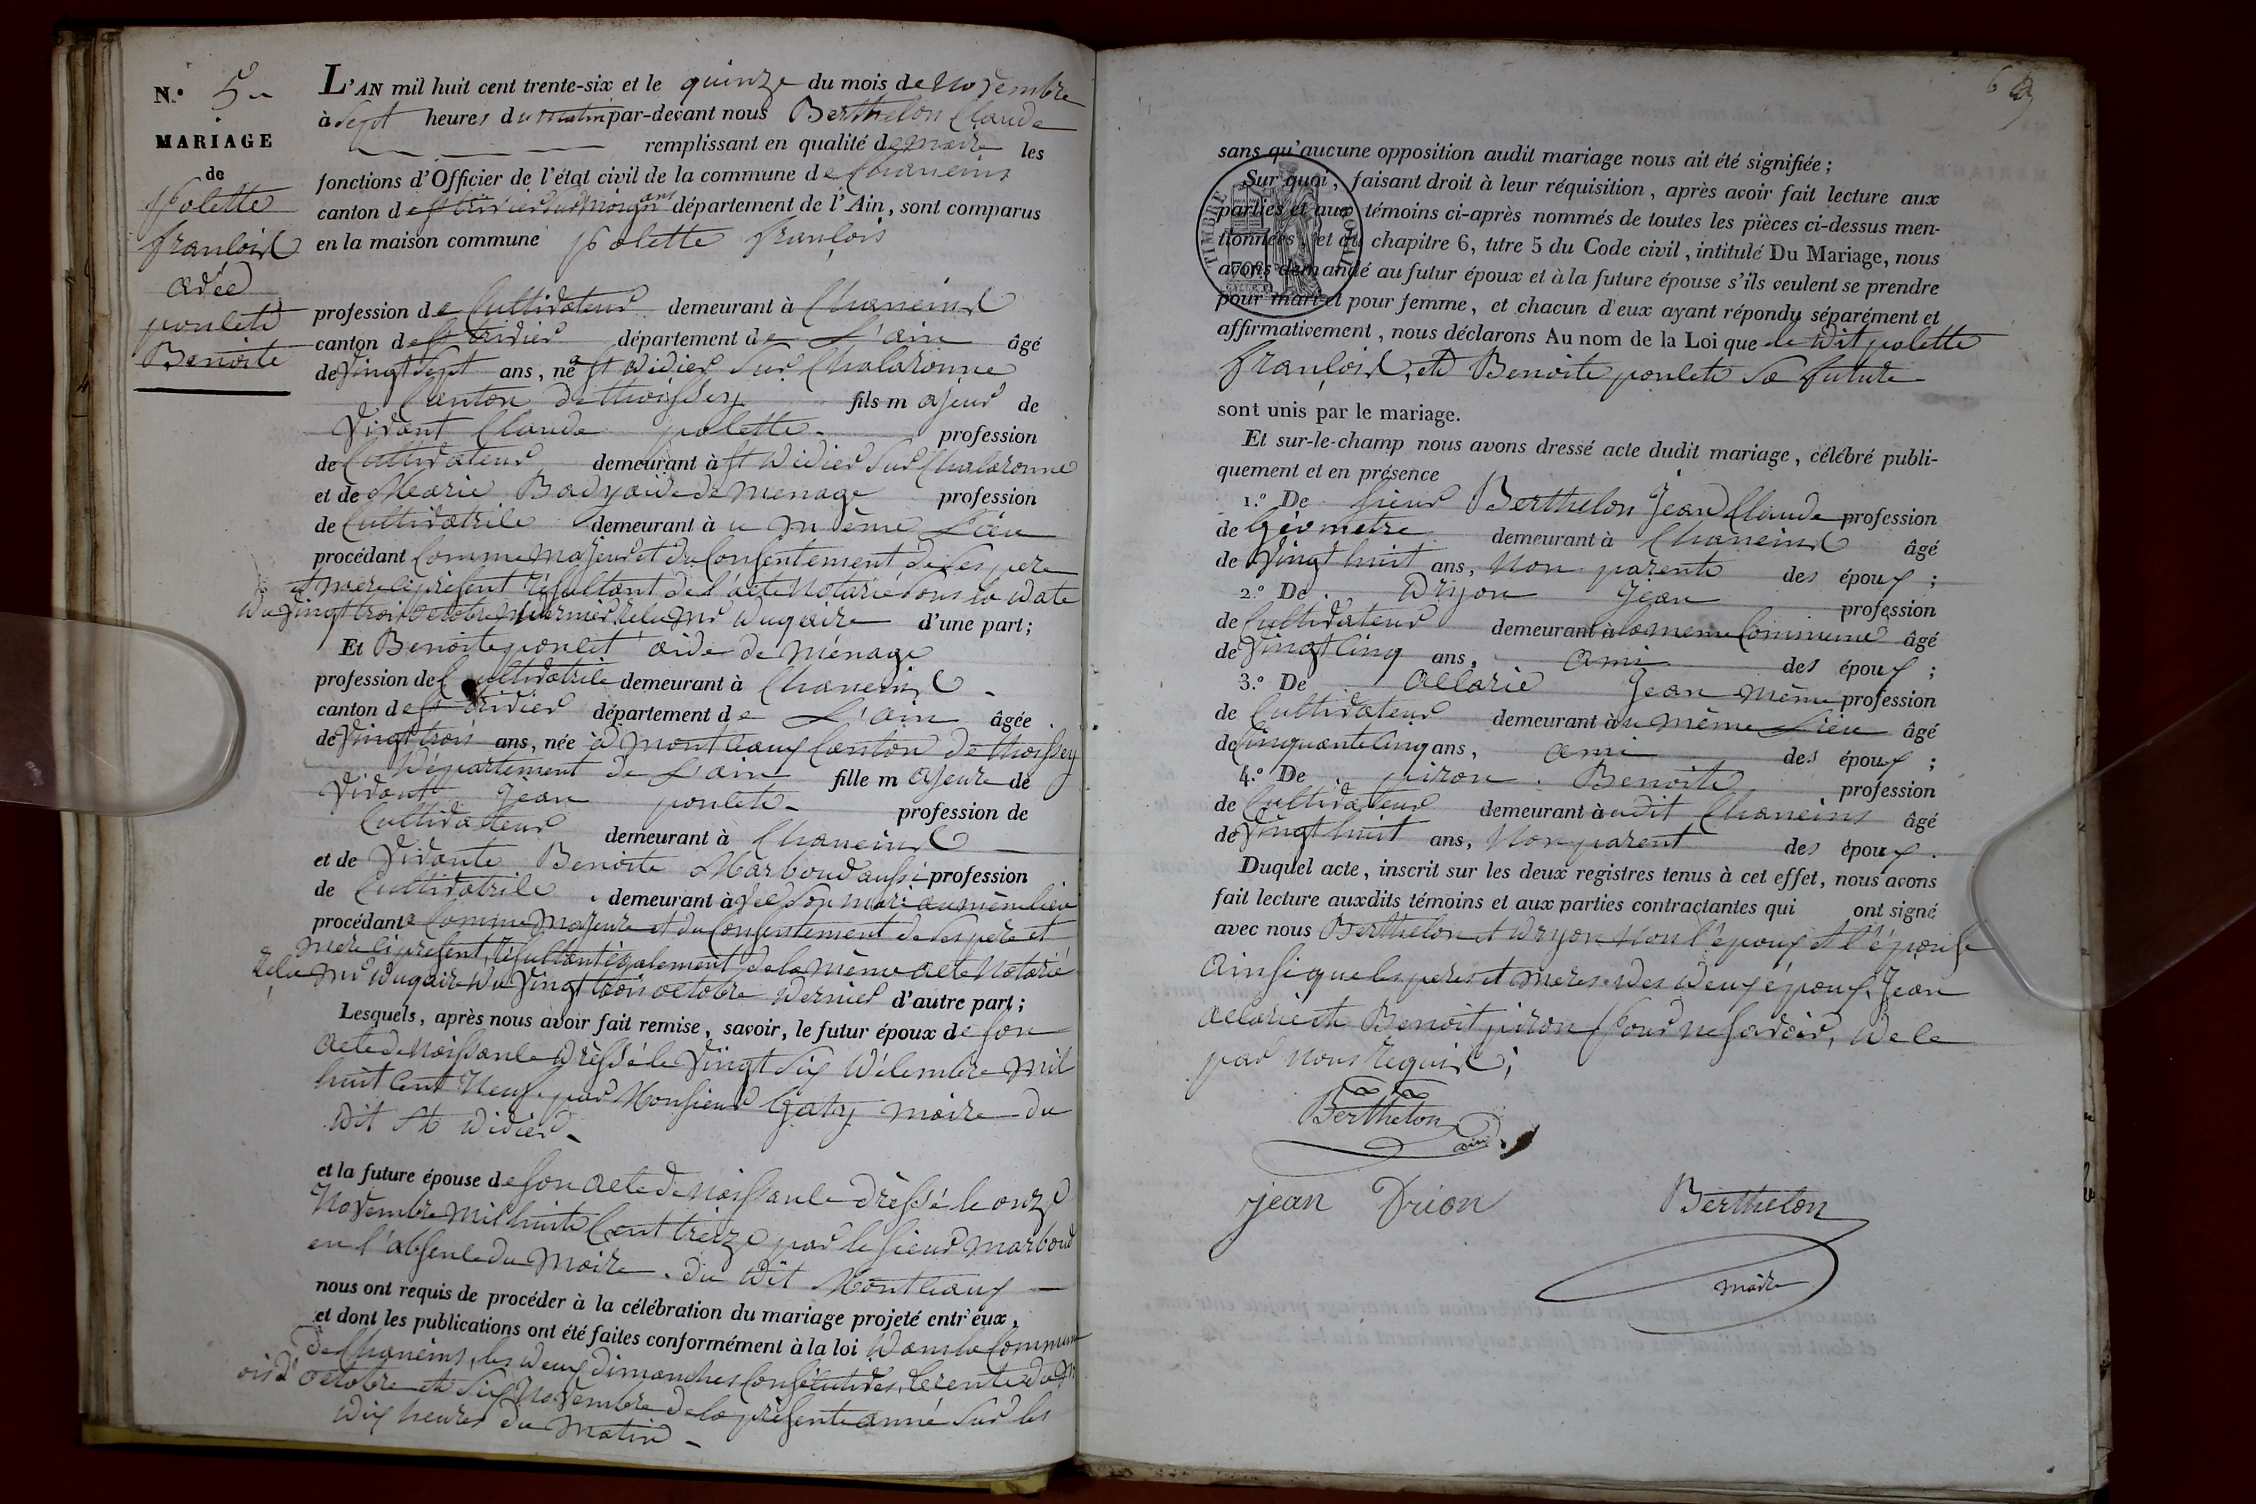 N.º 5
MARIAGE
de
polette
françois
avec
poulet
Benoite
L'AN mil huit cent trente-six et le quinze du mois de Novembre
à sept heures du matin par-devant nous Berthelon Claude
remplissant en qualité de maire les
fonctions d'Officier de l'état civil de la commune de Chaneins
canton de st trivier sur Moignans département de l'Ain, sont comparus
en la maison commune polette françois
profession de Cultivateur demeurant à Chaneins
canton de st trivier département de L'ain âgé
de vingt sept ans, né a st didier sur Chalaronne
Canton de thoissey fils majeur de
vivant Claude polette profession
de Cultivateur demeurant à st didier sur Chalaronne
et de Marie Bady aide de menage profession
de Cultivatrice demeurant à u même Lieu
procédant comme majeur et du Consentement de ses pere
et mere ci présent résultant de l'acte Notarié sous la date
du vingt trois octobre dernier Rélu Mr dugaire d'une part;
Et Benoite poulet aide de ménage
profession de Cultivatrice demeurant à Chaneins
canton de st trivier département de L'ain âgée
de vingt trois ans, née à montceaux Canton de thoissey
Département de L'ain fille majeure de
vivant Jean poulet profession de
Cultivateur demeurant à Chaneins
et de vivante Benoite Marboud aussi profession
de Cultivatrice demeurant à vec son mari au même lieu
procédante comme majeure et du Consentement de ses pere et
mere ci present, résultant également de la même acte Notarié
Rélu Mr dugaire du vingt trois octobre dernier d'autre part;
Lesquels, après nous avoir fait remise, savoir, le futur époux de son
acte de naissance dressé le vingt six décembre mil
huit cent Neuf par Monsieur Gaty maire du
dit st didier
et la future épouse de son acte de naissance dressé le onze
Novembre mil huit Cent treize par le sieur marboud
en l'absence du Maire du dit Montceaux
nous ont requis de procéder à la célébration du mariage projeté entr'eux,
et dont les publications ont été faites conformément à la loi dans la Commune
de Chaneins, les deux dimanches Consécutives, le trente du m
ois d'octobre et six Novembre de la présente anné sur les
dix heures du matin
sans qu'aucune opposition audit mariage nous ait été signifiée;
Sur quoi, faisant droit à leur réquisition, après avoir fait lecture aux
parties et aux témoins ci-après nommés de toutes les pièces ci-dessus men-
tionnées, et du chapitre 6, titre 5 du Code civil, intitulé Du Mariage, nous
avons demandé au futur époux et à la future épouse s'ils veulent se prendre
pour mari et pour femme, et chacun d'eux ayant répondu séparément et
affirmativement, nous déclarons Au nom de la Loi que le dit polette
françois, et Benoite poulet sa future
sont unis par le mariage.
Et sur-le-champ nous avons dressé acte dudit mariage, célébré publi-
quement et en présence
1.º De sieur Berthelon Jean Claude profession
de Géometre demeurant à Chaneins âgé
de vingt huit ans, Non parente des époux;
2.º De Dryon Jean profession
de Cultivateur demeurant à la meme Commune âgé
de vingt Cinq ans, ami des époux;
3.º De allarie Jean même profession
de Cultivateur demeurant à u même Lieu âgé
de Cinquante Cinq ans, ami des époux;
4.º De piron Benoite profession
de Cultivateur demeurant à udit Chaneins âgé
de vingt huit ans, Non parent des époux.
Duquel acte, inscrit sur les deux registres tenus à cet effet, nous avons
fait lecture auxdits témoins et aux parties contractantes qui ont signé
avec nous Berthelon et Dryon non l'époux et l'épouse
ainsi que les peres et meres des deux époux, Jean
allarie et Benoit piron pour ne savoir, de ce
par nous requis;
Berthelon
jean Drion
Berthelon
maire
TIMBRE ROYAL